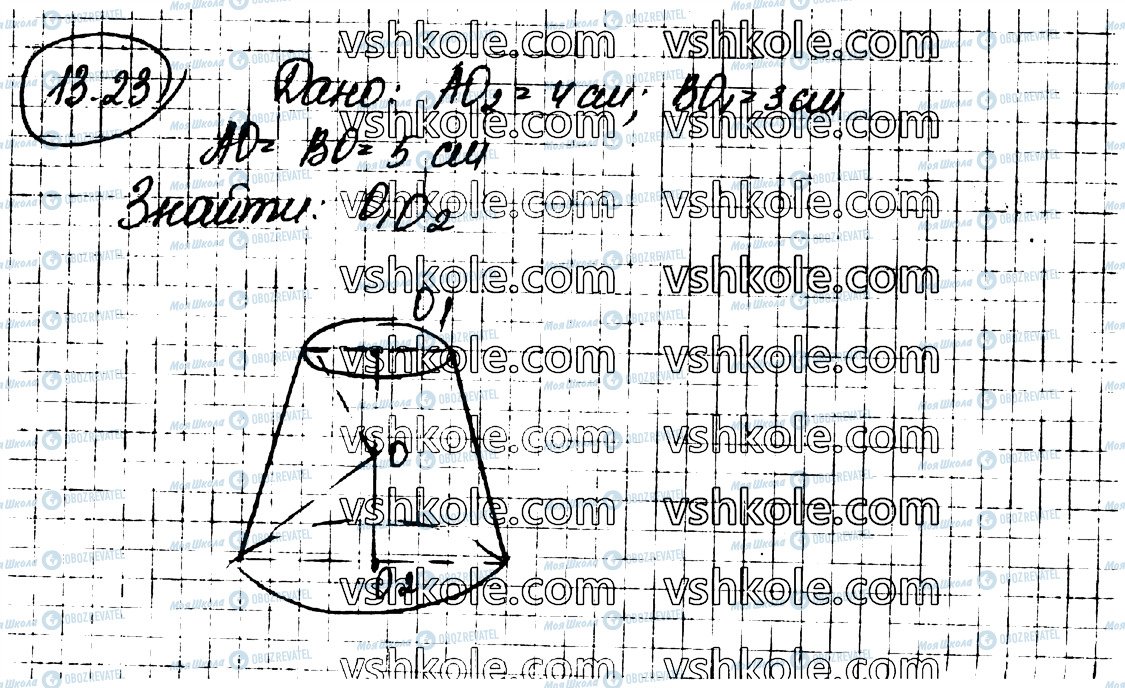 13.23) Дано: AO₂ = 4 см; BO₁ = 3 см
AO = BO = 5 см
Знайти: O₁O₂
O₁
O
O₂
vshkole.com vshkole.com
vshkole.com vshkole.com
vshkole.com vshkole.com
vshkole.com vshkole.com
vshkole.com vshkole.com
vshkole.com vshkole.com
vshkole.com vshkole.com
vshkole.com vshkole.com
vshkole.com vshkole.com
Моя Школа OBOZREVATEL